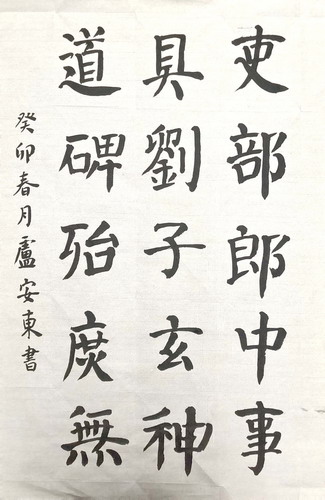 吏部郎中事
具劉子玄神
道碑殆庶無
癸卯春月盧安東書